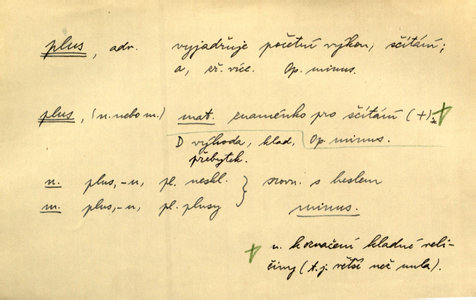 plus, adv. vyjadřuje početní výkon, sčítání;
a, víc. Op. minus.
plus, (n. nebo m.) mat. znaménko pro sčítání (+);
D výhoda, klad, Op. minus.
přebytek.
n. plus, -u, pl. neskl. } srovn. s heslem
m. plus, -u, pl. plusy minus.
n. k označení kladné veli-
činy (t. j. větší než nula).